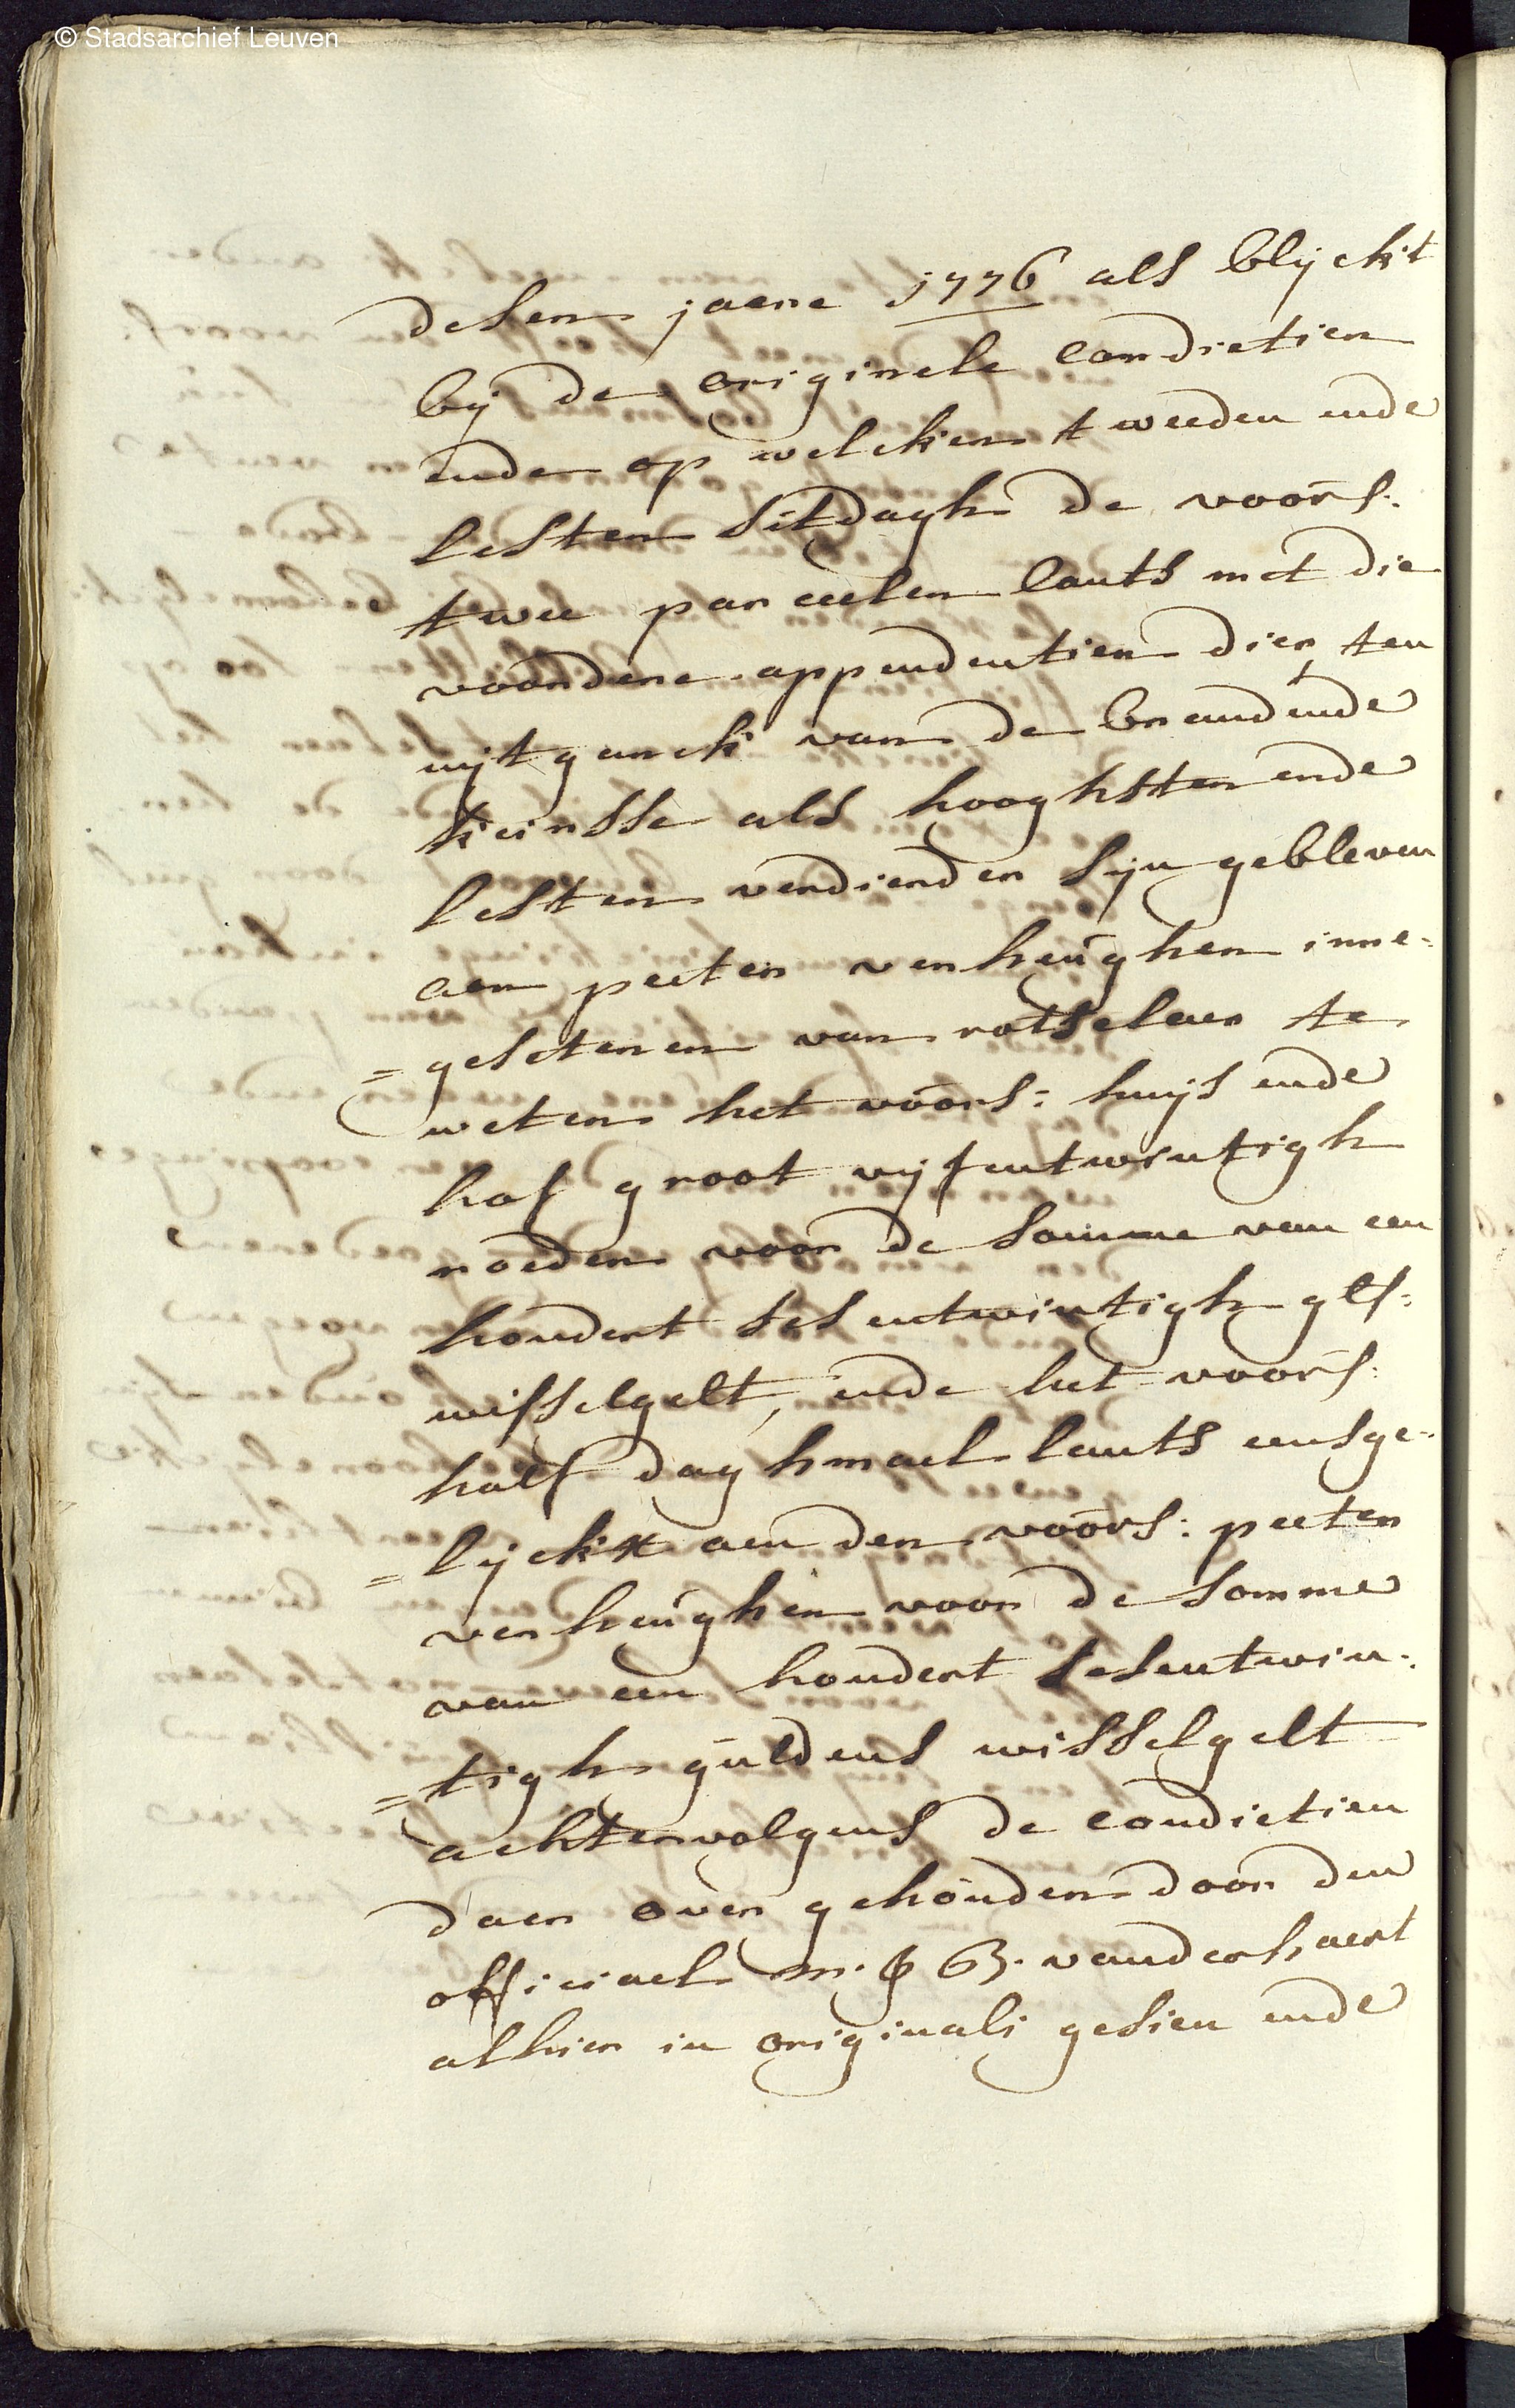 © Stadsarchief Leuven
desen jaere 1776 als blijckt
bij de originele condictien
ende op welcken tweeden ende
lesten sitdagh de voors:
twee parceelen lants met die
voordere appendentien dier ten
uijtganck van de brandende
keirsse als hooghsten ende
lesten verdierder sijn gebleven
aen peeter verheughen inne-
=gesetenen van rotselaer te
weten het voors: huijs ende
hof groot vijfentwintigh
roeden voor de somme van een
hondert ses entwintigh gls:
wisselgelt, ende het voors:
half daghmael lants eensge-
=lijckx aen den voors: peeter
verheughen voor de somme
van een hondert sesentwin-
=tigh guldens wisselgelt
achtervolgens de condictien
daer over gehouden door den
officiael m: B. vanderhaert
alhier in originali gesien ende